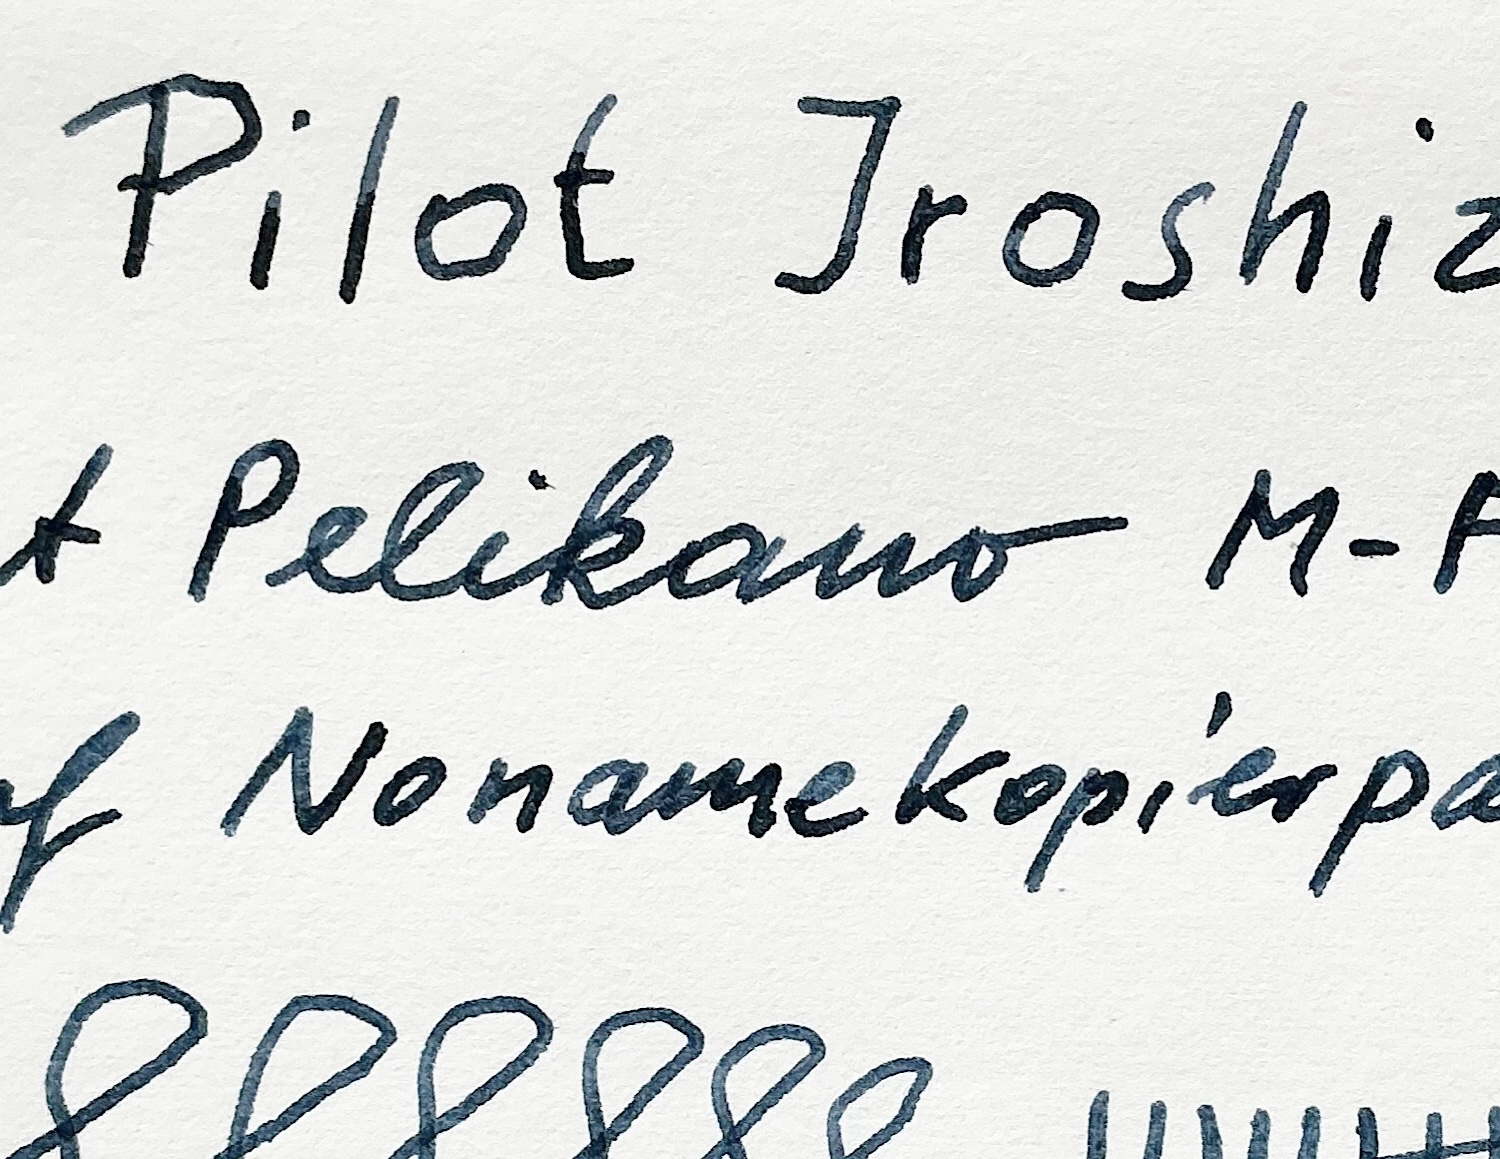 Pilot Iroshiz
t Pelikano M-F
uf Nonamekopierpa